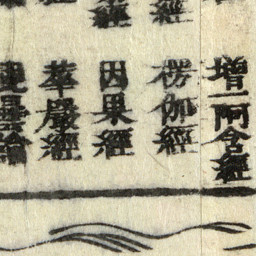 增一阿含經
楞伽經
因果經
華嚴經